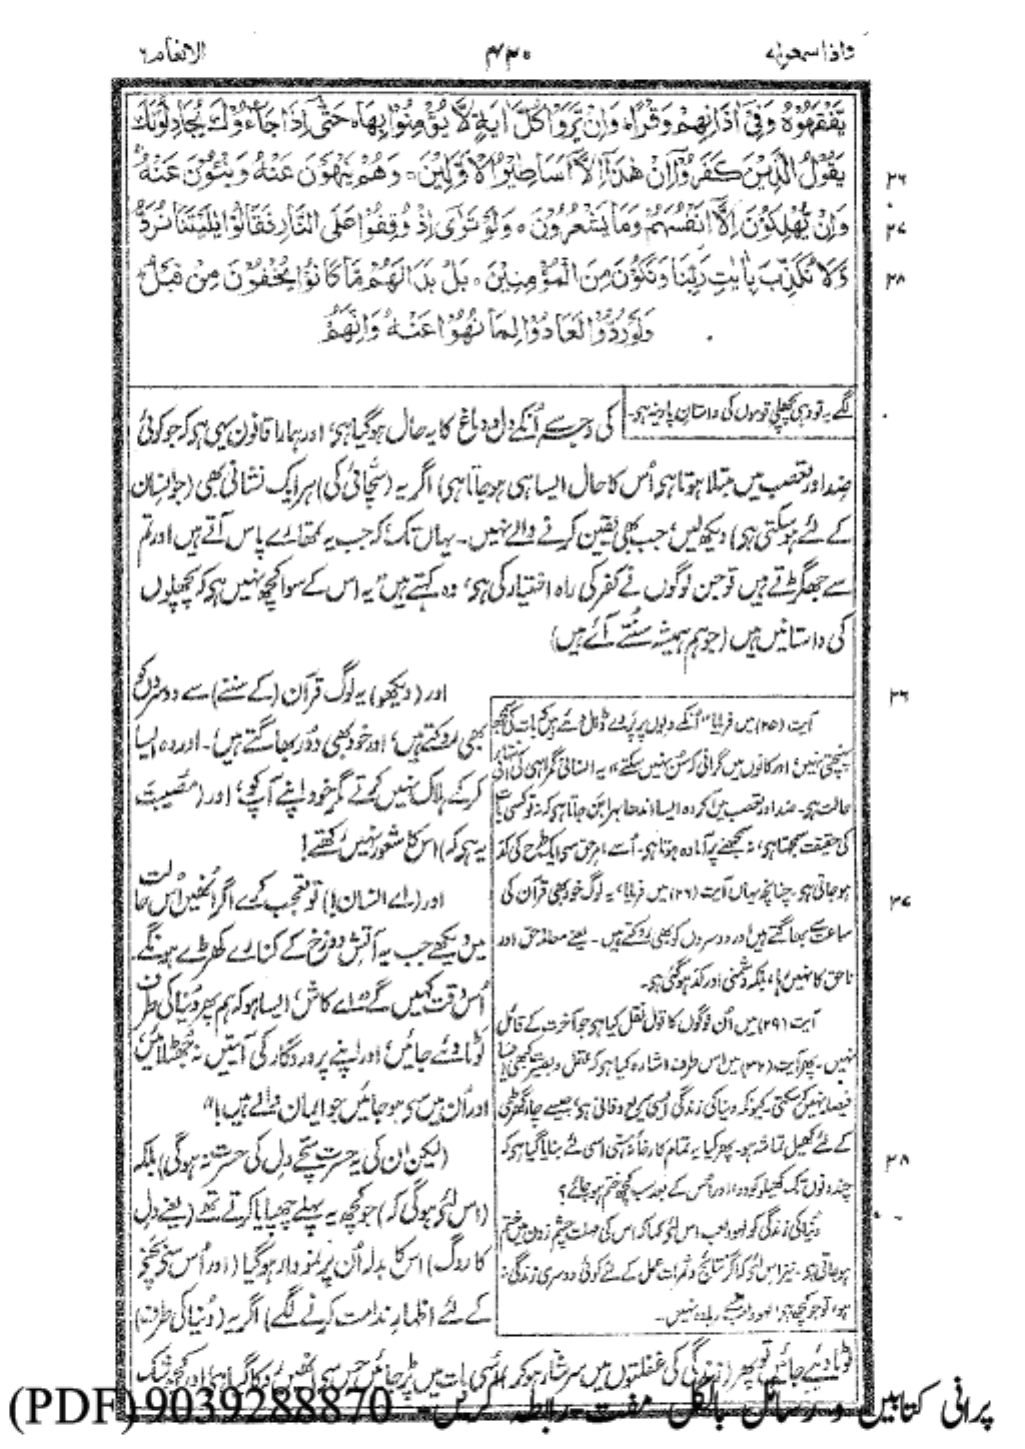 واذا سمعوا ۷
۴۳۰
الانعام ۶
يَّفْقَهُوْهُ وَفِيْٓ اٰذَانِهِمْ وَقْرًا وَاِنْ يَّرَوْا كُلَّ اٰيَةٍ لَّا يُؤْمِنُوْا بِهَا حَتّٰٓى اِذَا جَآءُوْكَ يُجَادِلُوْنَكَ
يَقُوْلُ الَّذِيْنَ كَفَرُوْٓا اِنْ هٰذَآ اِلَّآ اَسَاطِيْرُ الْاَوَّلِيْنَ۔ وَهُمْ يَنْهَوْنَ عَنْهُ وَيَنْـَٔوْنَ عَنْهُ
۲۶
وَاِنْ يُّهْلِكُوْنَ اِلَّآ اَنْفُسَهُمْ وَمَا يَشْعُرُوْنَ ۔ وَلَوْ تَرٰٓى اِذْ وُقِفُوْا عَلَى النَّارِ فَقَالُوْا يٰلَيْتَنَا نُرَدُّ
۲۷
وَلَا نُكَذِّبَ بِاٰيٰتِ رَبِّنَا وَنَكُوْنَ مِنَ الْمُؤْمِنِيْنَ ۔ بَلْ بَدَا لَهُمْ مَّا كَانُوْا يُخْفُوْنَ مِنْ قَبْلُ
۲۸
وَلَوْ رُدُّوْا لَعَادُوْا لِمَا نُهُوْا عَنْهُ وَاِنَّهُمْ
لگے یہ تو وہی پچھلی قوموں کی داستان پارینہ ہو۔
کی وجہ سے اُنکے دل و دماغ کا یہ حال ہو گیا ہی، اور ہمارا قانون یہی ہو کہ جو کوئی
ضد اور تعصب میں مبتلا ہوتا ہو اُس کا حال ایسا ہی ہو جاتا ہی) اگر یہ (سچائی کی) ہر ایک نشانی بھی (جو انسان
کے لئے ہو سکتی ہی) دیکھ لیں، جب بھی یقین کرنے والے نہیں۔ یہاں تک کہ جب یہ تمھارے پاس آتے ہیں اور تم
سے جھگڑتے ہیں تو جن لوگوں نے کفر کی راہ اختیار کی ہی، وہ کہتے ہیں "یہ اس کے سوا کچھ نہیں ہو کہ پچھلوں
کی داستانیں ہیں (جو ہم ہمیشہ سنتے آئے ہیں)
اور (دیکھو) یہ لوگ قرآن (کے سننے) سے دوسروں کو
۲۶
بھی روکتے ہیں، اور خود بھی دُور بھاگتے ہیں۔ اور وہ ایسا
کر کے ہلاک نہیں کرتے مگر خود اپنے آپ کو، اور (مصیبت
یہ ہو کہ) اس کا شعور نہیں رکھتے!
اور (اے انسان!) تو تعجب کرے اگر اُنھیں اس حالت
۲۷
میں دیکھے جب یہ آتش دوزخ کے کنارے کھڑے ہونگے۔
اُس وقت کہیں گے "اے کاش، ایسا ہو کہ ہم پھر دُنیا کی طرف
لَوٹا دئے جائیں، اور اپنے پروردگار کی آیتیں نہ جھٹلائیں
اور اُن میں سے ہو جائیں جو ایمان والے ہیں!"
(لیکن ان کی یہ حسرت سچے دل کی حسرت نہ ہوگی) بلکہ
۲۸
(اس لئے ہوگی کہ) جو کچھ یہ پہلے چھپایا کرتے تھے (یعنے دل
کا روگ) اس کا بدلہ اُن پر نمودار ہو گیا (اور اُس سے بچنے
کے لئے اظہار ندامت کرنے لگے) اگر یہ (دُنیا کی طرف)
آیت (۲۵) میں فرمایا "اُنکے دلوں پر پردے ڈال دئے ہیں کہ بات کی سمجھ
پہنچتی نہیں، اور کانوں میں گرانی کہ سُن نہیں سکتے" یہ انسانی گمراہی کی انتہائی
حالت ہو۔ ضد اور تعصب میں آکر وہ ایسا اندھا بہرا بن جاتا ہو کہ نہ تو کسی بات
کی حقیقت سمجھتا ہو، نہ سمجھنے پر آمادہ ہوتا ہو۔ اُسے امرِ حق سے ایک طرح کی کد
ہو جاتی ہو۔ چنانچہ یہاں آیت (۲۶) میں فرمایا، یہ لوگ خود بھی قرآن کی
سماعت سے بھاگتے ہیں اور دوسروں کو بھی روکتے ہیں۔ یعنے معاملہ حق اور
ناحق کا نہیں رہا، بلکہ دشمنی اور کد ہو گئی ہو۔
آیت (۲۹) میں اُن لوگوں کا قول نقل کیا ہو جو آخرت کے قائل
نہیں۔ پھر آیت (۳۲) میں اس طرف اشارہ کیا ہو کہ عقل و بصیرت کبھی ایسا
فیصلہ نہیں کر سکتی۔ کیونکہ دنیا کی زندگی ایسی سریع و فانی ہو، جیسے چار گھڑی
کے لئے کھیل تماشہ ہو۔ پھر کیا یہ تمام کارخانہ ہستی اسی لئے بنایا گیا ہو کہ
چند دنوں تک کھیلو کودو، اور اُس کے بعد سب کچھ ختم ہو جائے؟
دُنیا کی زندگی کو لہو و لعب اس لئے کہا کہ اس کی مہلت چشم زدن میں ختم
ہو جاتی ہو۔ نیز اس لئے کہ اگر نتائج و ثمرات عمل کے لئے کوئی دوسری زندگی نہ
ہو، تو جو کچھ ہو، لہو و لعب سے زیادہ نہیں۔
لَوٹا دئیے جائیں تو پھر (زندگی کی غفلتوں میں سرشار ہو کر) اُسی بات میں پڑ جائیں جس سے اُنھیں روکا گیا ہو، اور کچھ شک
پرانی کتابیں و رسائل بالکل مفت رابطہ کریں۔ 9039288870 (PDF)